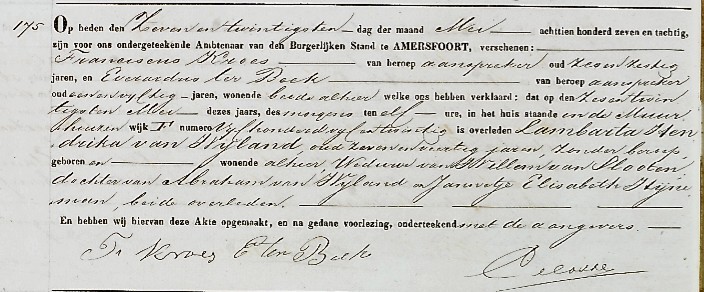 175 Op heden den Zeven en twintigsten dag der maand Mei achttien honderd zeven en tachtig,
zijn voor ons ondergeteekende Ambtenaar van den Burgerlijken Stand te AMERSFOORT, verschenen:
Franciscus Kroes van beroep aanspreker oud zes en zestig
jaren, en Everardus ter Beek van beroep aanspreker
oud een en vijftig jaren, wonende beide alhier welke ons hebben verklaard: dat op den zes en twin
tigsten Mei dezes jaars, des morgens ten elf ure, in het huis staande in de Muur
huizen wijk F numero vijfhonderd vijf en twintig is overleden Lambarta Hen
drika van Nyland, oud zeven en veertig jaren, zonder beroep,
geboren en wonende alhier Weduwe van Willem van Slooten
dochter van Abraham van Nyland en Jannetje Elisabeth
man, beide overleden.
En hebben wij hiervan deze Akte opgemaakt, en na gedane voorlezing, onderteekend met de aangevers.
Fr Kroes E ter Beek